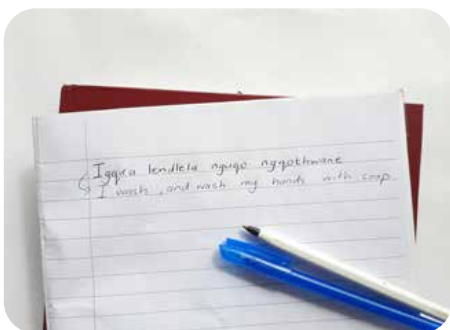 Igqira lendlela nguqo ngqothwane
I wash, and wash my hands with soap.